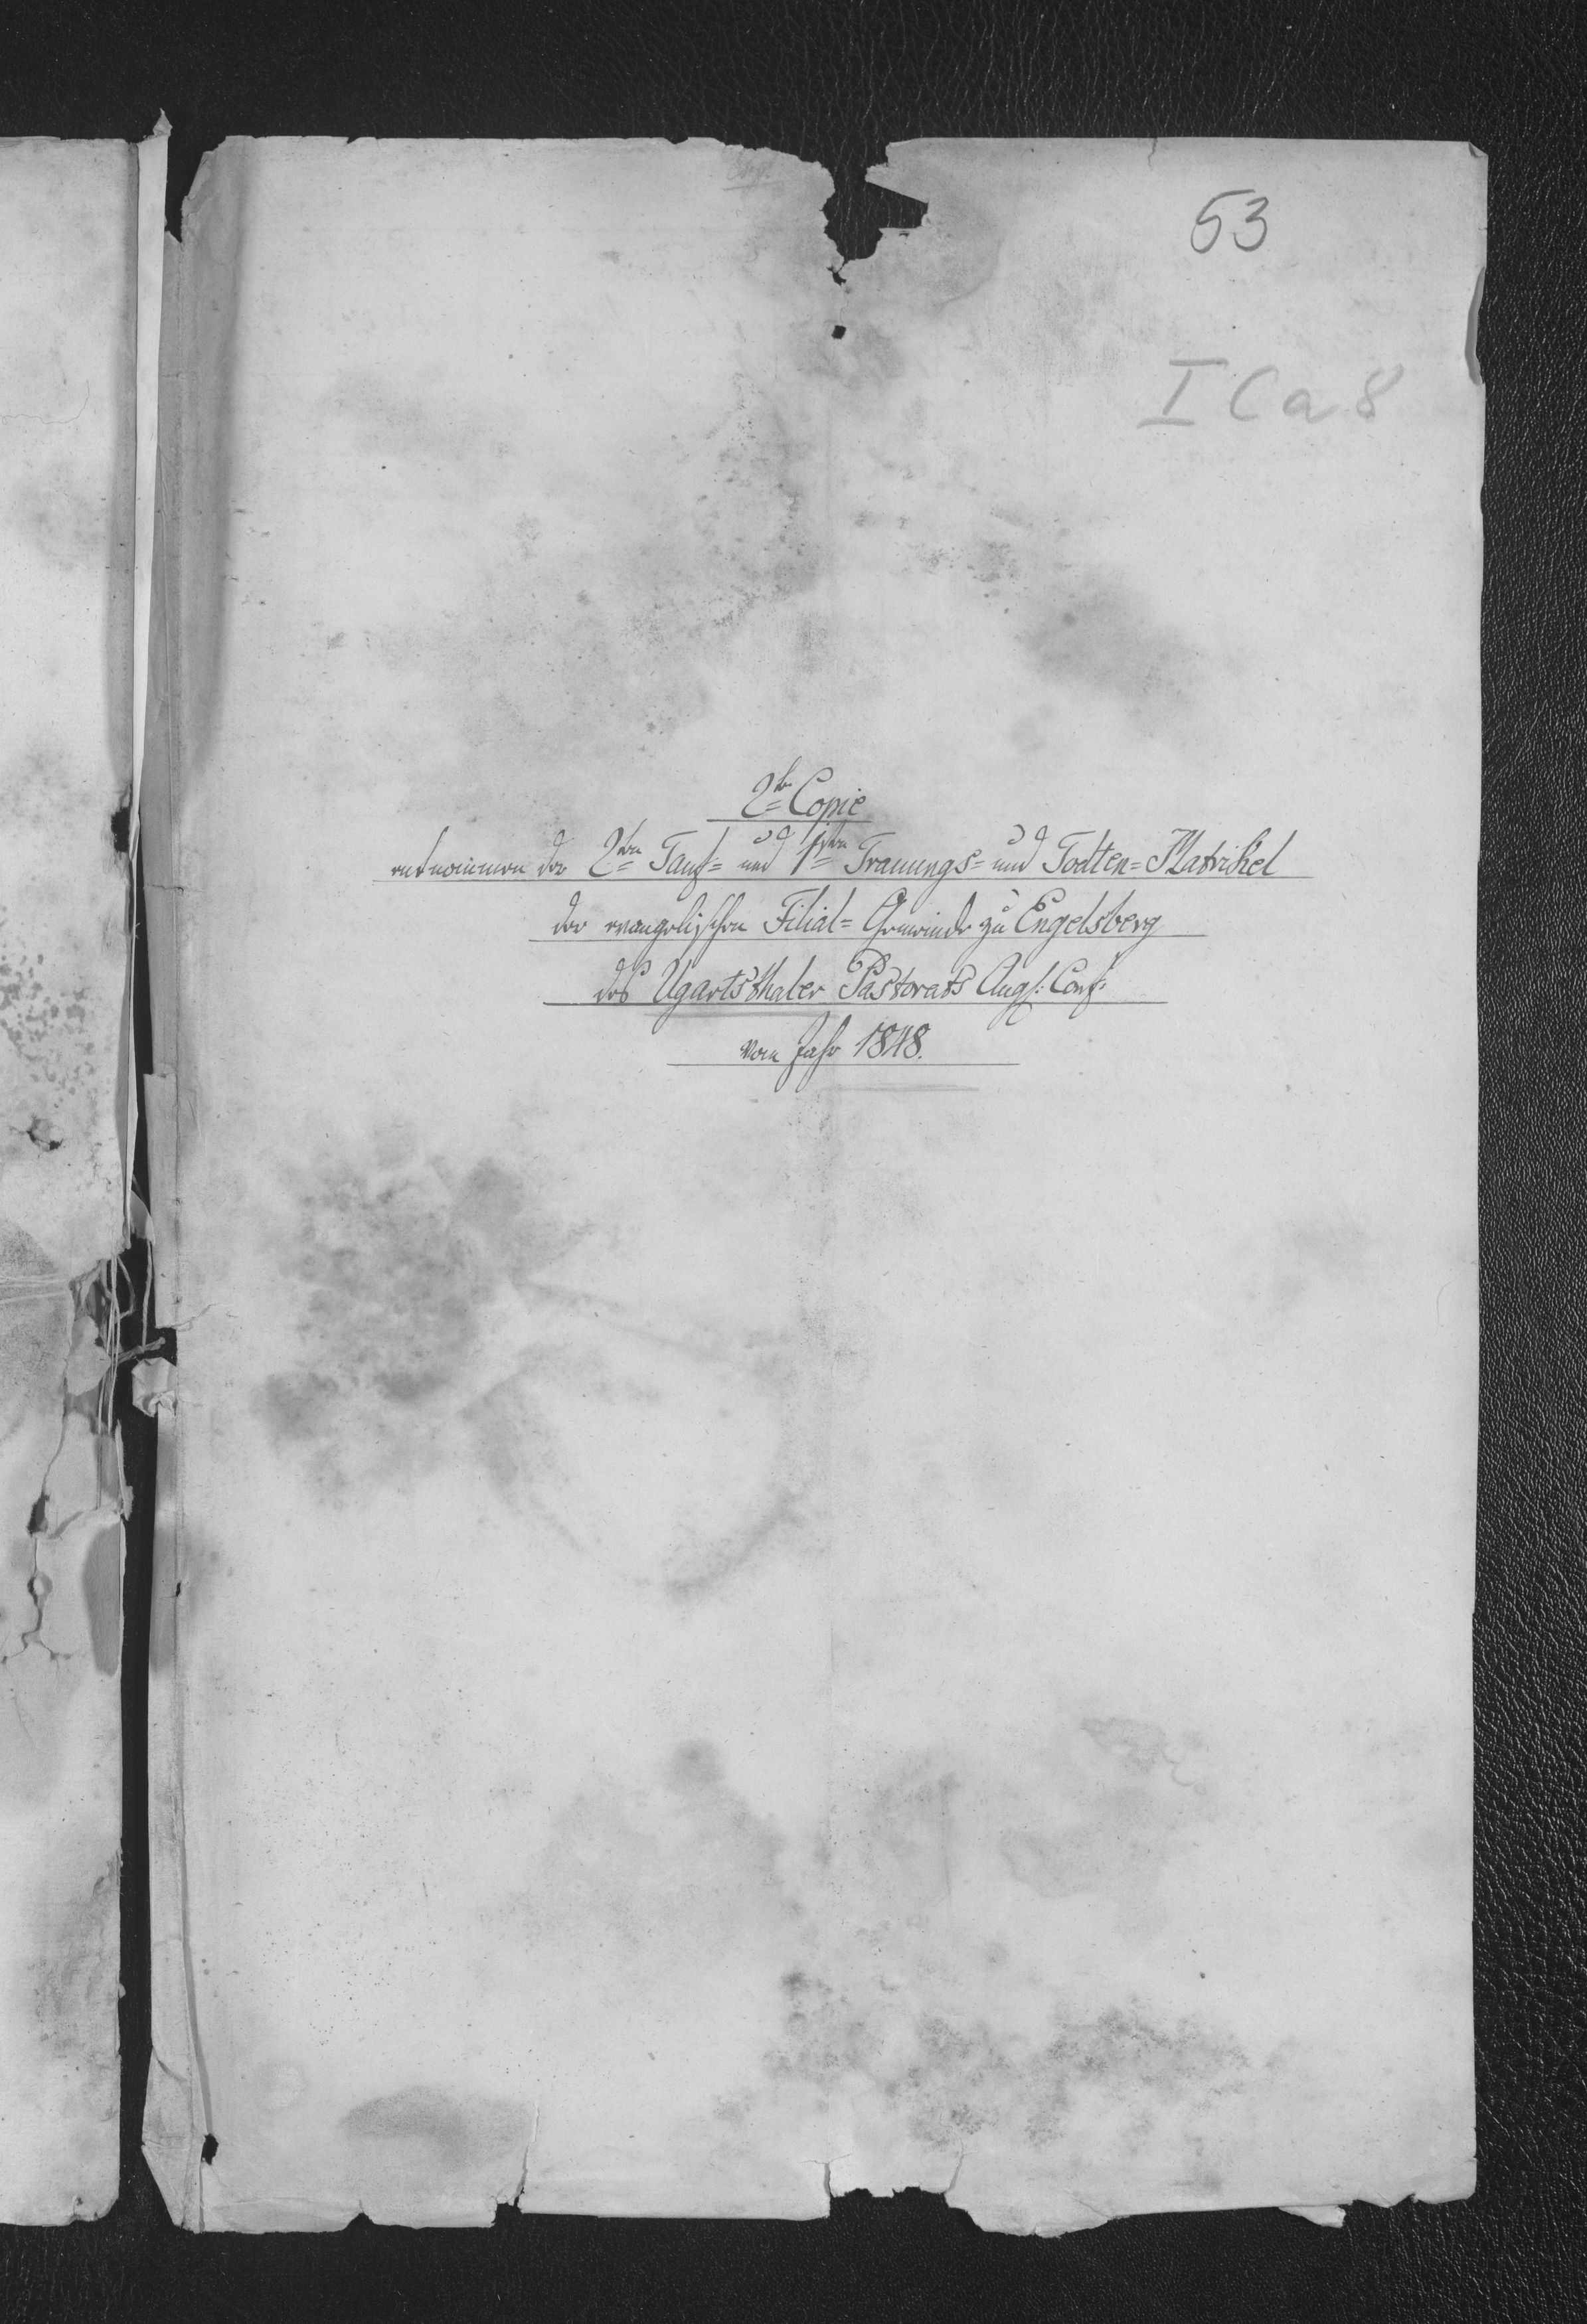 53
I C a 8
2te Copie
entnommen der 2ten Tauf= und 1ten Trauungs= und Todten=Matrikel
der evangelischen Filial=Gemeinde zu Engelsberg
des Ugartsthaler Pastorats Augs: Conf:
vom Jahr 1848.